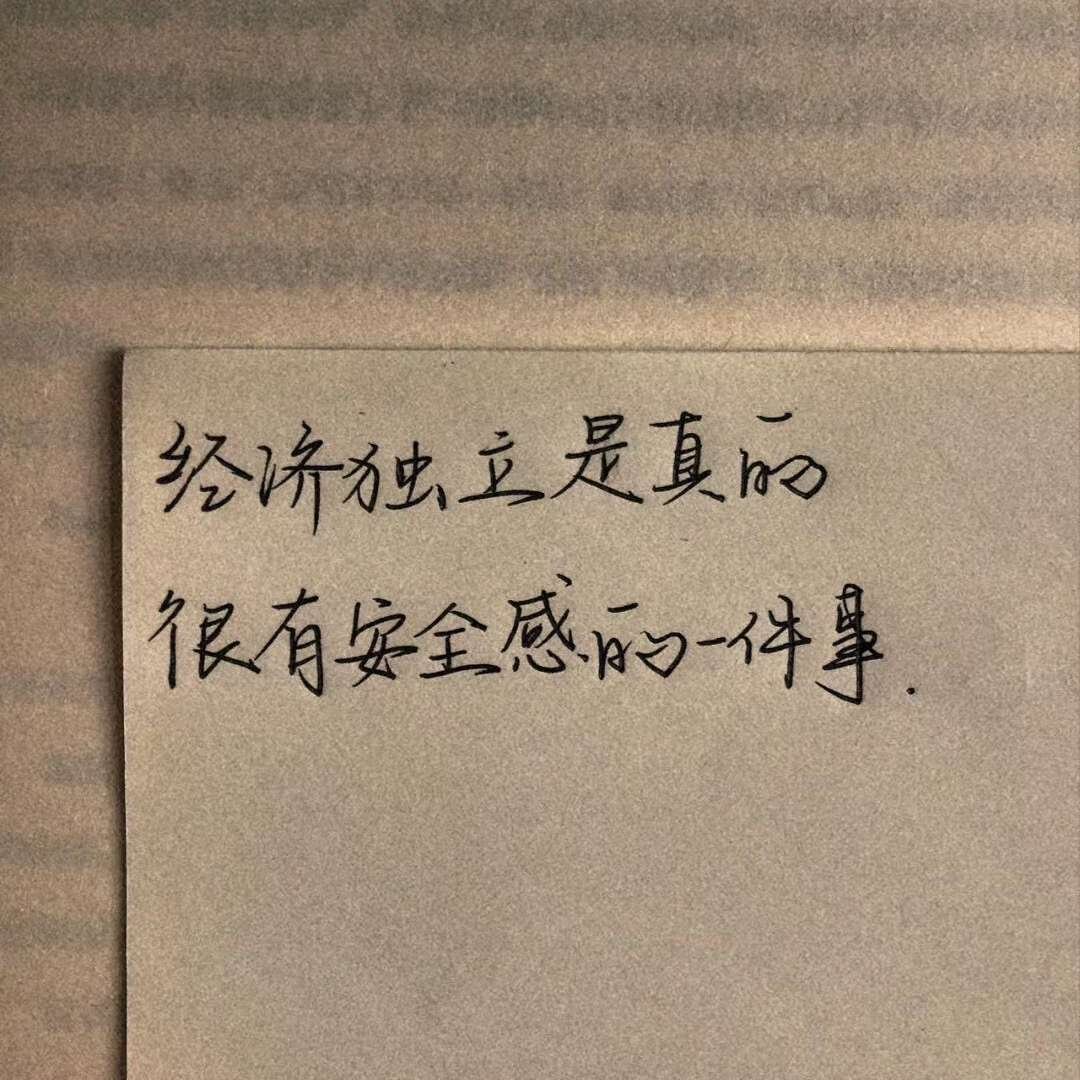 经济独立是真的
很有安全感的一件事.